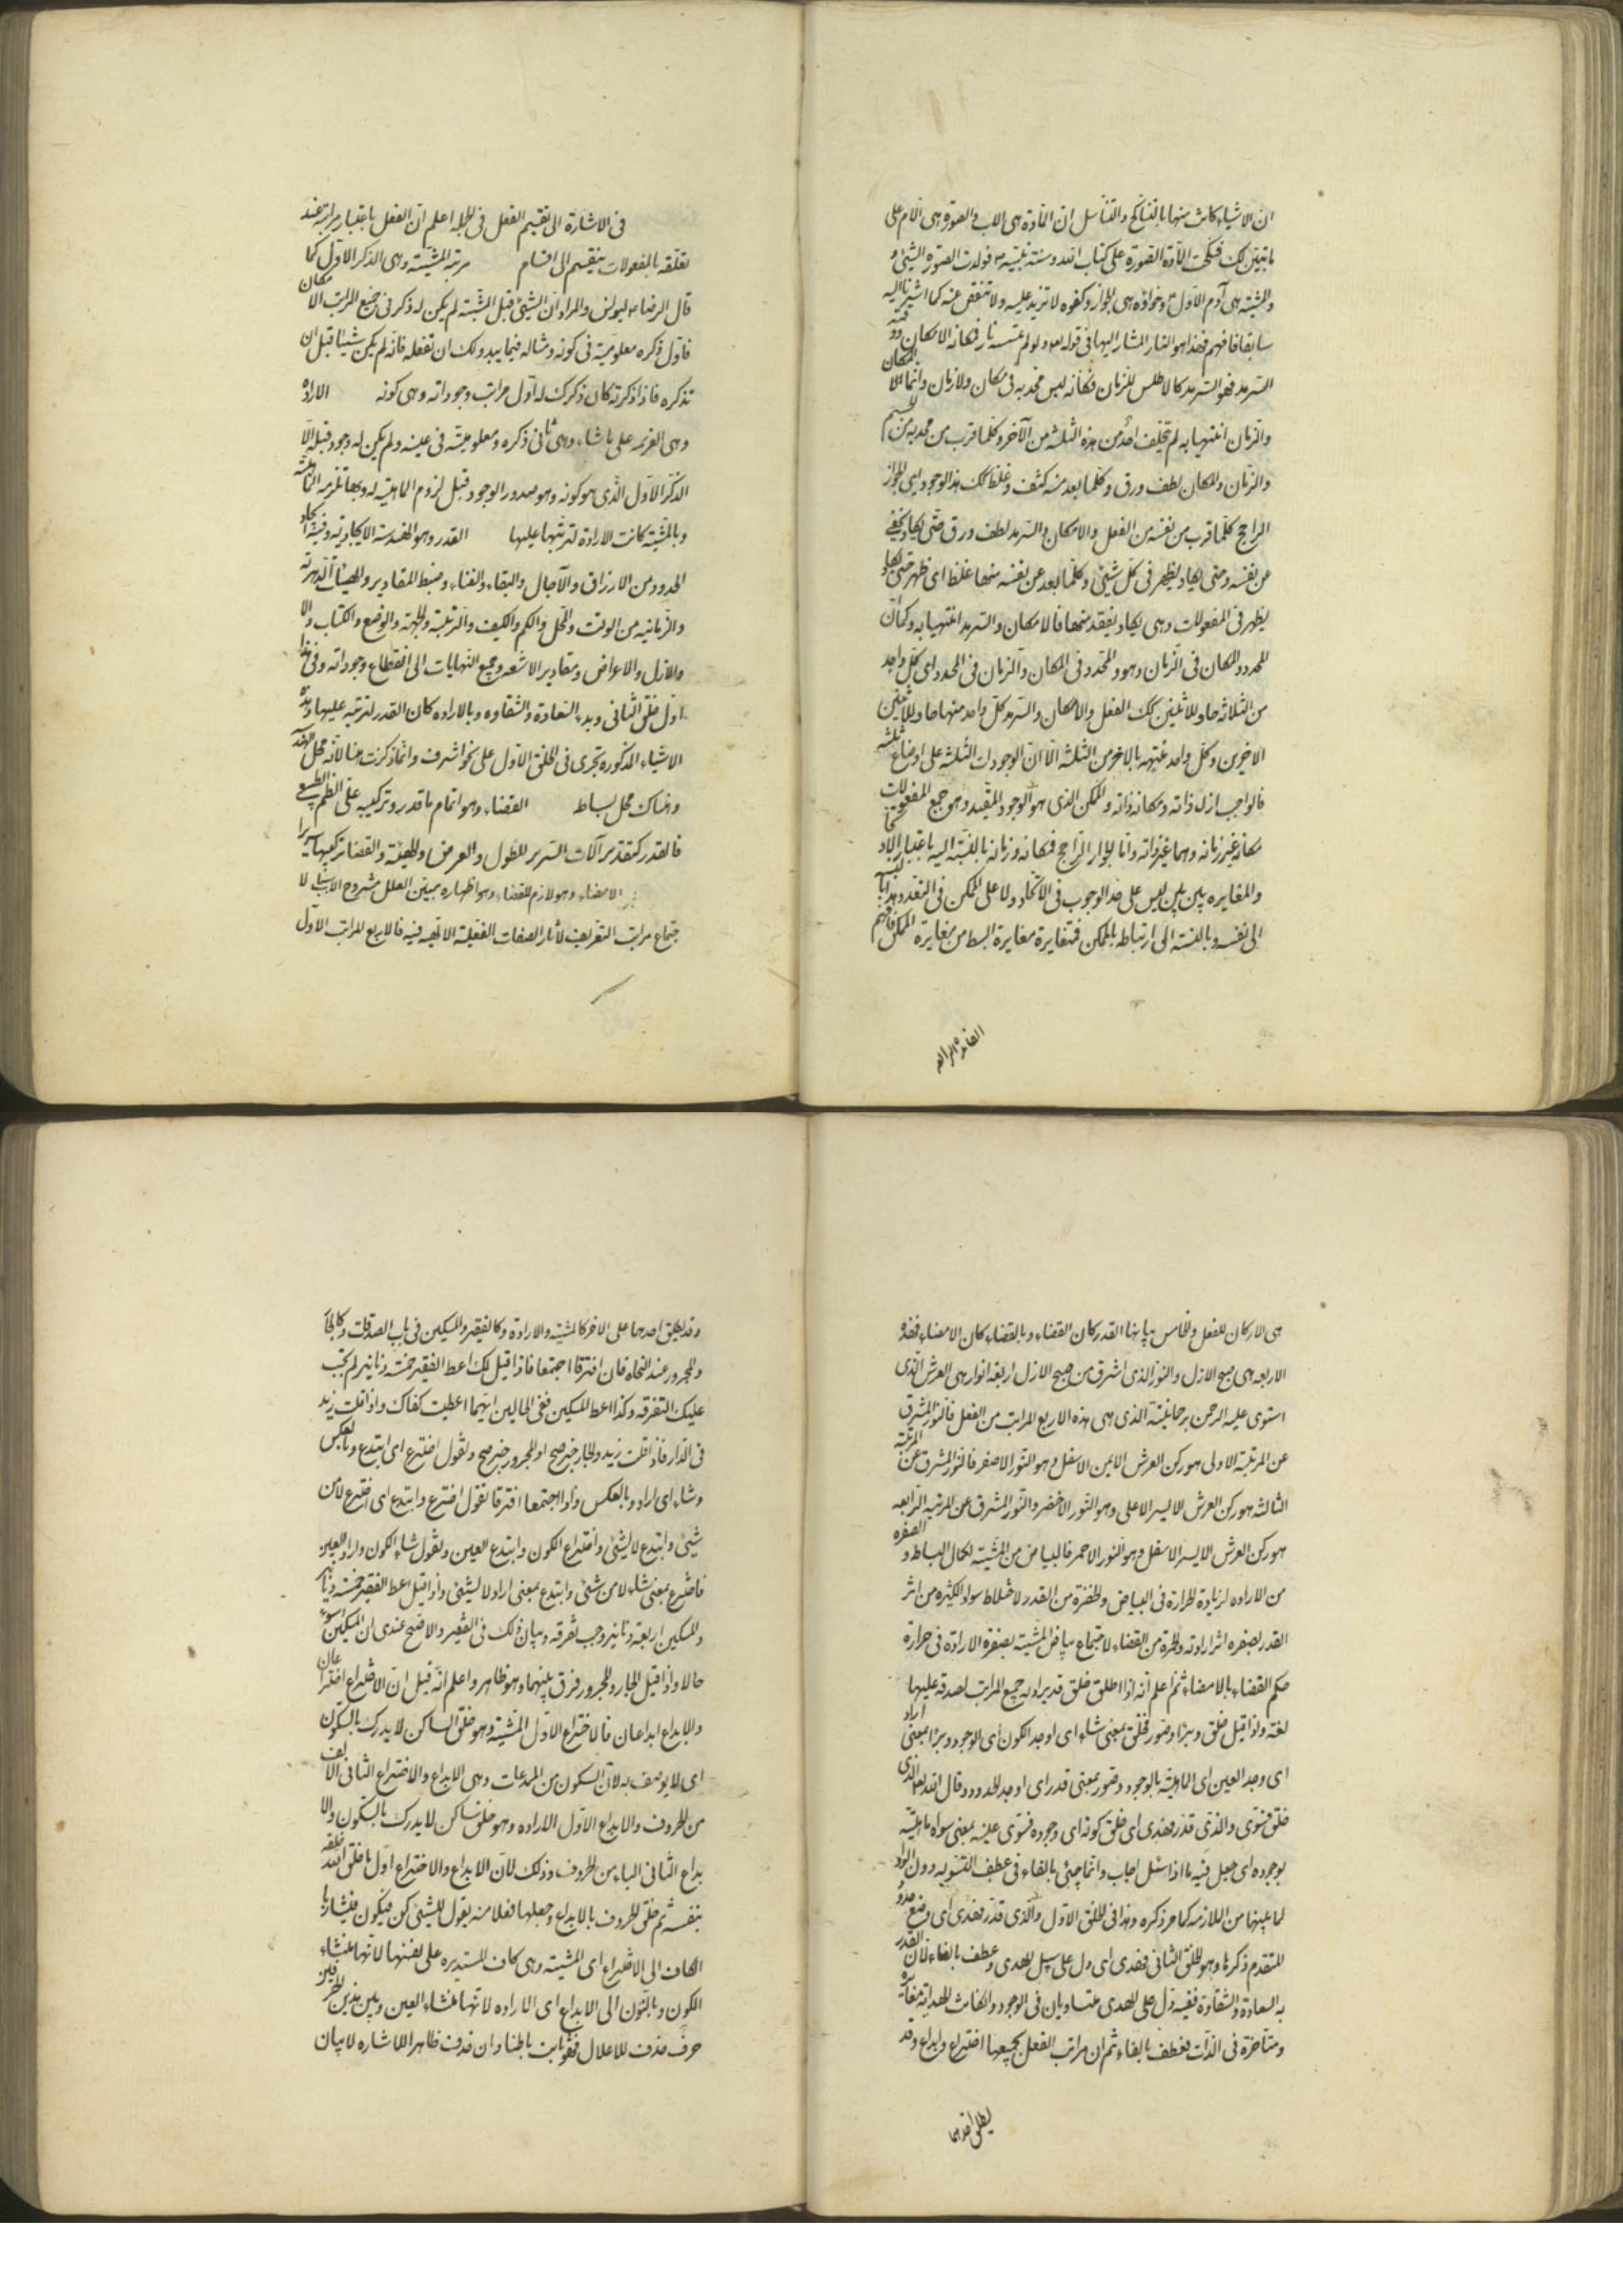 ان الاشیاء کانت منها بالتناکح و التناسل ان المادة هی الاب و الصورة هی الام علی
ما تبین لک فنکحت المادة الصورة علی کتاب الله و سنة نبیه ص فولدت الصورة الشیئ و
والمشیة هی آدم الاول ع و حواؤه هی الجواز و کفوه لا تزید علیه و لا تنقص عنه کما اشیر الیه
سابقا فافهم فهذا هو النار المشار الیها فی قوله تعالی و لو لم تمسسه نار فکانه الامکان و وقته
السرمد فهو السرمد کالاطلس للزمان فکما انه لیس محدبه فی مکان و لا زمان و انما المکان
والزمان انتهیا به لم یتخلف احد من هذه الثلثة من الآخر و کلما قرب من محدبه من الجسم
والزمان والمکان لطف و رق و کلما بعد منه کثف و غلظ کذلک هذا الوجود ای الجواز
الراجح کلما قرب من نفسه من الفعل و الامکان و السرمد لطف و رق حتی یکاد یخفی
عن نفسه و حتی یکاد یظهر فی کل شیئ و کلما بعد عن نفسه منها غلظ ای ظهر حتی یکاد
یظهر فی المفعولات و هی یکاد تفقد منها فالامکان و السرمد انتهیا به و کما ان
المحدد و المکان فی الزمان و هو و المحدد فی المکان و الزمان فی المحدد ای کل واحد
من الثلاثة حاو للاثنین کذلک الفعل و الامکان و السرمد کل واحد منها حاو للاثنین
الاخیرین و کل واحد غیبته بالاخر من الثلثة الا ان الوجودات الثلثة علی اوضاع ثلثة
فالواجب ازله ذاته و مکانه ذاته و الممکن الذی هو الوجود المقید و هو جمیع المفعولات
مکانه غیر زمانه و هما غیر ذاته و اما الجواز الراجح فمکانه و زمانه بالنسبة الیه باعتبار الاتحاد
والمغایرة بین بین لیس علی حد الوجوب فی الاتحاد و لا علی الممکن فی التعدد هذا بالنسبة
الی نفسه و بالنسبة الی ارتباطه بالممکن فتغایره مغایرة ابسط من مغایرة الممکن فافهم
الفائدة الرابعة
فی الاشارة الی تقسیم الفعل فی الجملة اعلم ان الفعل باعتبار مراتبه عند
تعلقه بالمفعولات ینقسم الی اقسام مرتبة المشیة و هی الذکر الاول کما
قال الرضا ع لیونس و المراد ان الشیئ قبل المشیة لم یکن له ذکر فی جمیع المراتب الامکان
فاول ذکره معلومیته فی کونه و مثاله فیما یبدو لک ان تفعله فانه لم یکن شیئا قبل ان
تذکره فاذا ذکرته کان ذکرک له اول مراتب وجوداته و هی کونه الاراده
وهی العزیمة علی ما شاء و هی ثانی ذکره و معلومیته فی عینه و لم یکن له وجود قبله الا
الذکر الاول الذی هو کونه و هو صدور الوجود قبل لزوم الماهیة له و بها تلزمه الماهیة
وبالمشیة کانت الارادة لترتبها علیها القدر و هو الهندسة الایجادیة و فیه ایجاد
الحدود من الارزاق و الآجال و البقاء و الفناء و ضبط المقادیر و الهیئات الدهریة
والزمانیة من الوقت و المحل و الکم و الکیف و الرتبة و الجهة و الوضع و الکتاب و الا
والازل و الاعراض و مقادیر الاشعة و جمیع النهایات الی انقطاع وجوداته و فی هذا
اول خلق الثانی و بدء السعادة و الشقاوه و بالاراده کان القدر لترتبه علیها و هذه
الاشیاء المذکورة تجری فی الخلق الاول علی نحو اشرف و انما ذکرت هنا لانه محل الهندسة
و هناک محل بساط القضاء و هو اتمام ما قدر و ترکیبه علی النظم الطبیعی
فالقدر کتقدیر آلات السریر للطول و العرض و الهیئة و القضا ترکیبها سریرا
الامضاء و هو لازم للقضاء و هو اظهاره مبین العلل مشروح الاسباب لا
جتماع مراتب التعریف لآثار الصفات الفعلیة الالهیة فیه فالاربع المراتب الاول
هی الارکان للفعل و الخامس بیانها القدر کان القضاء و بالقضاء کان الامضاء فهذه
الاربعة هی صبح الازل و النور الذی اشرق من صبح الازل اربعة انوار هی العرش الذی
استوی علیه الرحمن برحمانیته الذی هی هذه الاربع المراتب من الفعل فالنور المشرق
عن المرتبة الاولی هو رکن العرش الایمن الاسفل و هو النور الاصفر فالنور المشرق عن المرتبة
الثالثة هو رکن العرش الایسر الاعلی و هو النور الاخضر و النور المشرق عن المرتبة الرابعة
هو رکن العرش الایسر الاسفل و هو النور الاحمر فالبیاض من المشیة لکمال البساطة و الصفرة
من الاراده لزیادة الحرارة فی البیاض و الخضرة من القدر لاختلاط سواد الکثرة من اثر
القدر لصفره اثر ارادته و الحمرة من القضاء لاجتماع بیاض المشیة بصفرة الارادة فی حرارة
حکم القضاء بالامضاء ثم اعلم انه اذا اطلق خلق قد یراد به جمیع المراتب لصدقه علیها
لغة و اذا قیل خلق و برا و صور فخلق بمعنی شاء ای اوجد الکون ای الوجود و برا بمعنی اراد
ای وجد العین ای الماهیة بالوجود و صور بمعنی قدر ای اوجد الحدود و قال الله تعالی الذی
خلق فسوی و الذی قدر فهدی ای خلق کونه ای وجوده فسوی عینه بمعنی سواه ماهیته
بوجوده ای جعل فیه ما اذا سئل اجاب و انما جیئ بالفاء فی عطف التسویة دون الواو
لما بینهما من الملازمة کما مر ذکره و هذا فی الخلق الاول و الذی قدر فهدی ای وضع حدوده
المتقدم ذکرها و هو الخلق الثانی فهدی ای دل علی سبل الهدی و عطف بالفاء لان القدر
به السعادة و الشقاوة ففیه دل علی الهدی متساویان فی الوجود و الکانت الهدایة مغایرة
ومتاخرة فی الذات فعطف بالفاء ثم ان مراتب الفعل بجمیعها اختراع و ابداع و قد
یطلق احدهما
وقد یطلق احدهما علی الاخر کالمشیة و الارادة و کالفقیر و المسکین فی باب الصدقات و کالجار
والمجرور عند النحاة فان افترقا اجتمعا فاذا قیل لک اعط الفقیر خمسة دنانیر لم یجب
علیک التفرقه و کذا اعط المسکین ففی الحالین ایهما اعطیت کفاک و اذا قلت زید
فی الدار فاذا قلت زید و الجار خبر صح او المجرور خبر صح و تقول اخترع ای ابتدع و بالعکس
وشاء ای اراد و بالعکس و اذا اجتمعا افترقا تقول اخترع و ابتدع ای اخترع لا من
شیئ و ابتدع لا لشیئ و اختراع الکون و ابتدع العین و تقول شاء الکون و اراد العین
فاخترع بمعنی شاء لا من شیئ و ابتدع بمعنی اراد لا لشیئ و اذا قیل اعط الفقیر خمسة دنانیر
والمسکین اربعة دنانیر وجب تفرقه و بیان ذلک فی الفقیر و الاصح عندی ان المسکین اسوء
حالا و اذا قیل الجار و المجرور فرق بینهما و هو ظاهر و اعلم انه قیل ان الاختراع اختراعان
والابداع ابداعان فالاختراع الاول المشیة و هو خلق الساکن لا یدرک بالسکون
ای لا یوصف به لان السکون من المبدعات و هی الابداع و الاختراع الثانی الالف
من الحروف و الابداع الاول الاراده و هو خلق ساکن لا یدرک بالسکون و الا
بداع الثانی الباء من الحروف و ذلک لان الابداع و الاختراع اول ما خلق الله خلقه
بنفسه ثم خلق الحروف بالابداع و جعلها فعلا منه یقول للشیئ کن فیکون فیشار بها
الکاف الی الاختراع ای المشیة و هی کاف المستدیرة علی نفسها لانها منشاء
الکون و بالنون الی الابداع ای الاراده لانها منشاء العین و بین هذین الحرفین
حرف حذف للاعلال فهو ثابت باطنا و ان حذف ظاهرا للاشاره لا بیان